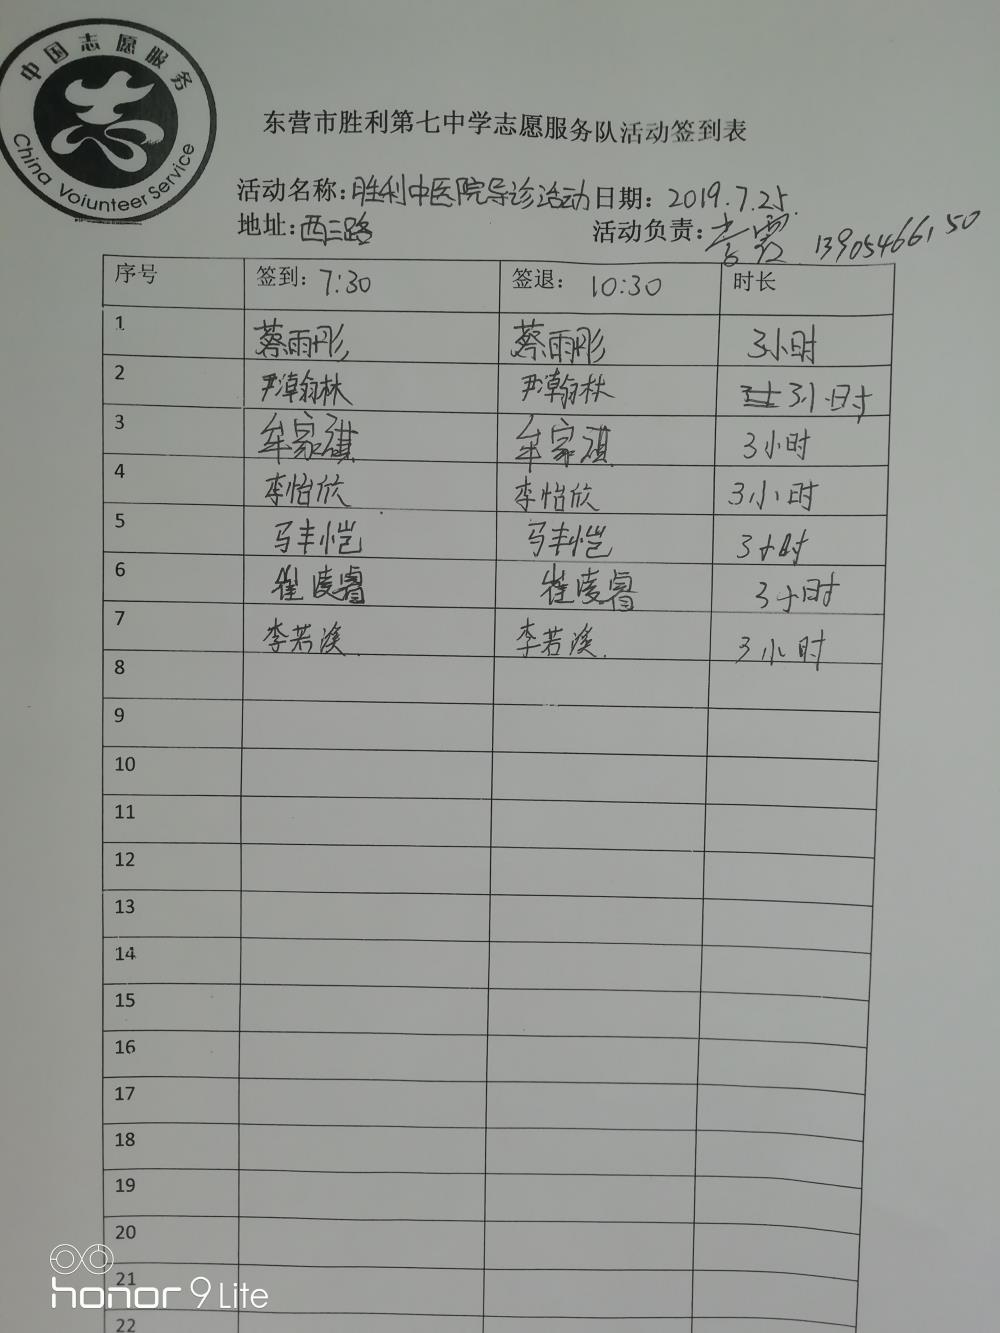 中国志愿服务
China Voiunteer Service
东营市胜利第七中学志愿服务队活动签到表
活动名称:胜利中医院导诊活动 日期: 2019.7.25.
地址:西三路 活动负责: 霞 13905466150
序号 签到: 7:30 签退: 10:30 时长
1 蔡雨彤 蔡雨彤 3小时
2 尹瀚林 尹瀚林 3小时
3 牟家祺 牟家祺 3小时
4 李怡欣 李怡欣 3小时
5 马丰恺 马丰恺 3小时
6 崔凌睿 崔凌睿 3小时
7 李若溪. 李若溪. 3小时
8
9
10
11
12
13
14
15
16
17
18
19
20
21
22
honor 9 Lite